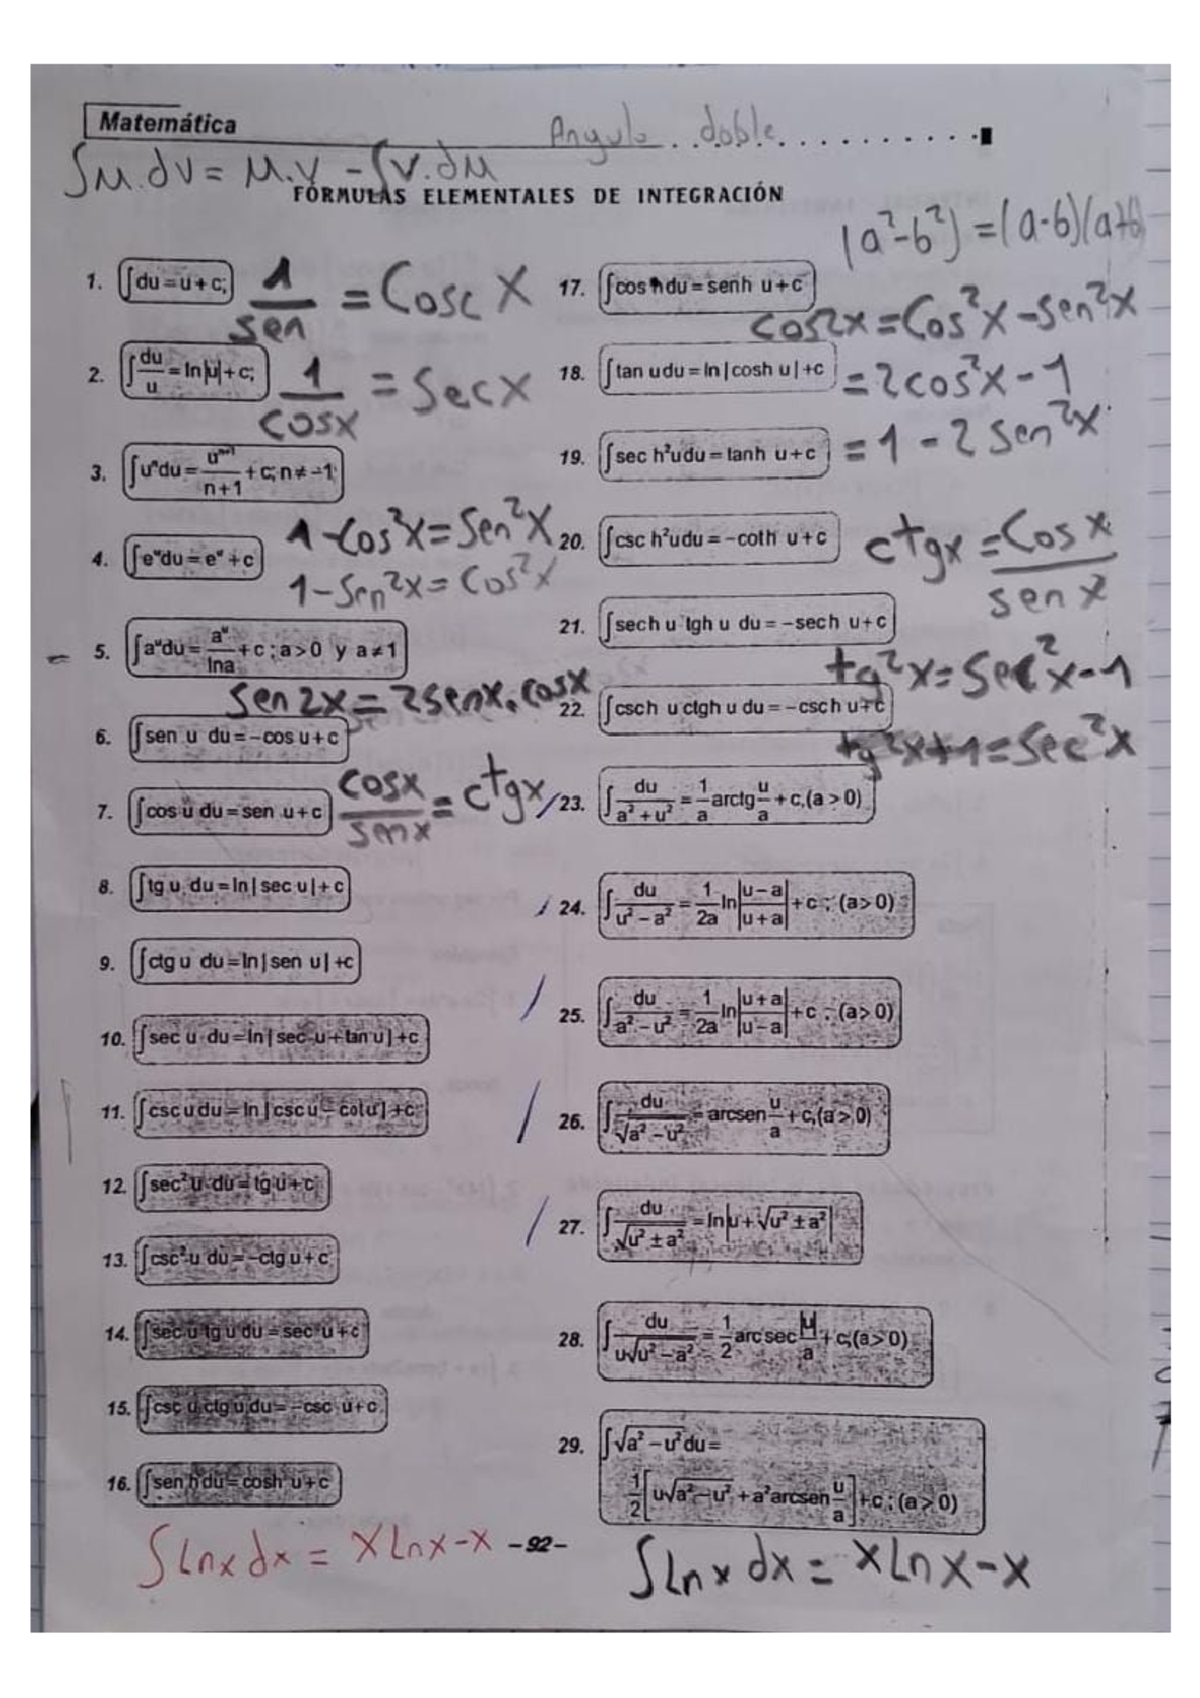 Matemática
Angulo doble
∫u.dv = u.v - ∫v.du
FÓRMULAS ELEMENTALES DE INTEGRACIÓN
(a²-b²) = (a-b)(a+b)
1. ∫du = u + c;
1/sen = Cosc x
2. ∫du/u = ln|u| + c;
1/cosx = Secx
3. ∫uⁿdu = uⁿ⁺¹/n+1 + c; n ≠ -1;
4. ∫eᵘdu = eᵘ + c
1-Cos²x = Sen²x
1-Sen²x = Cos²x
5. ∫aᵘdu = aᵘ/lna + c ; a > 0 y a ≠ 1
Sen2x = 2senx.cosx
6. ∫sen u du = -cos u + c
7. ∫cos u du = sen u + c
cosx/senx = ctgx
8. ∫tg u du = ln|sec u| + c
9. ∫ctg u du = ln|sen u| + c
10. ∫sec u du = ln|sec u + tan u| + c
11. ∫csc u du = ln|csc u - cotu| + c
12. ∫sec² u du = tg u + c
13. ∫csc² u du = -ctg u + c
14. ∫sec u tg u du = sec u + c
15. ∫csc u ctg u du = -csc u + c
16. ∫sen h du = cosh u + c
17. ∫cos h du = senh u + c
cos2x = Cos²x - sen²x
18. ∫tan u du = ln|cosh u| + c
= 2cos²x - 1
19. ∫sec h²u du = tanh u + c
= 1 - 2 Sen²x
20. ∫csc h²u du = -coth u + c
ctgx = Cos x/sen x
21. ∫sech u tgh u du = -sech u + c
tg²x = Sec²x - 1
22. ∫csch u ctgh u du = -csch u + c
tg²x + 1 = Sec²x
23. ∫du/a² + u² = 1/a arctg u/a + c, (a > 0)
24. ∫du/u² - a² = 1/2a ln|u - a/u + a| + c ; (a > 0)
25. ∫du/a² - u² = 1/2a ln|u + a/u - a| + c ; (a > 0)
26. ∫du/√a² - u² = arcsen u/a + c, (a > 0)
27. ∫du/√u² ± a² = ln|u + √u² ± a²|
28. ∫du/u√u² - a² = 1/2 arc sec |u|/a + c; (a > 0)
29. ∫√a² - u² du =
1/2[u√a² - u² + a²arcsen u/a] + c ; (a > 0)
∫Lnx dx = xLnx-x
- 92 -
∫Lnx dx = xLnx-x